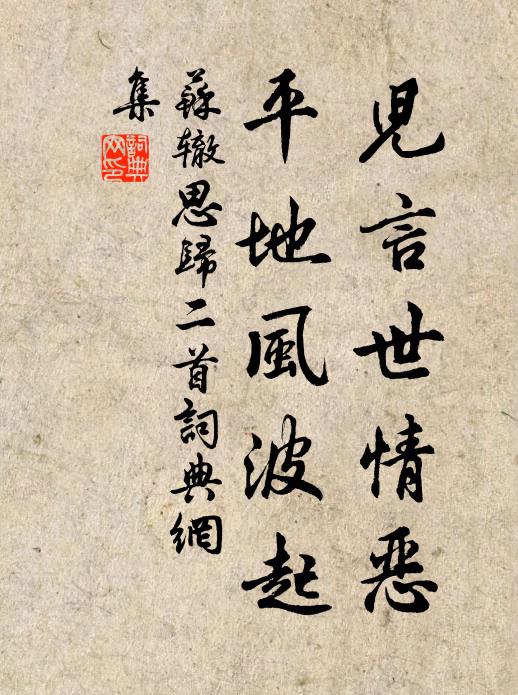 兒言世情惡
平地風波起
蘇轍思歸二首詞典網
集
詞典
网印